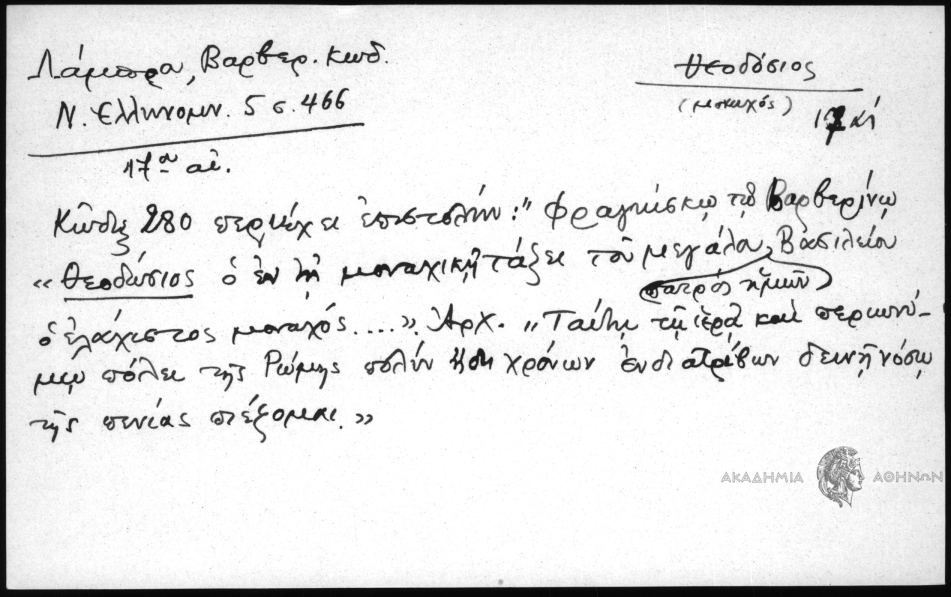 Λάμπρου, Βαρβερ. κωδ.
Ν. Ἑλληνομν. 5 σ. 466
17ος αἰ.
Θεοδόσιος
(μοναχός)
17 αἰ
Κῶδιξ 280 περιέχει ἐπιστολήν: "Φραγκίσκῳ τῷ Βαρβερίνῳ
«Θεοδόσιος ὁ ἐν τῇ μοναχικῇ τάξει τοῦ μεγάλου Βασιλείου
πατρός ἡμῶν
ὁ ἐλάχιστος μοναχός....». Ἀρχ. „Ταύτῃ τῇ ἱερᾷ καὶ περιωνύ-
μῳ πόλει τῆς Ρώμης πολύν ἤδη χρόνων ἐνδιατρίβων δεινῇ νόσῳ
τῆς πενίας πιέζομαι.»
ΑΚΑΔΗΜΙΑ ΑΘΗΝΩΝ